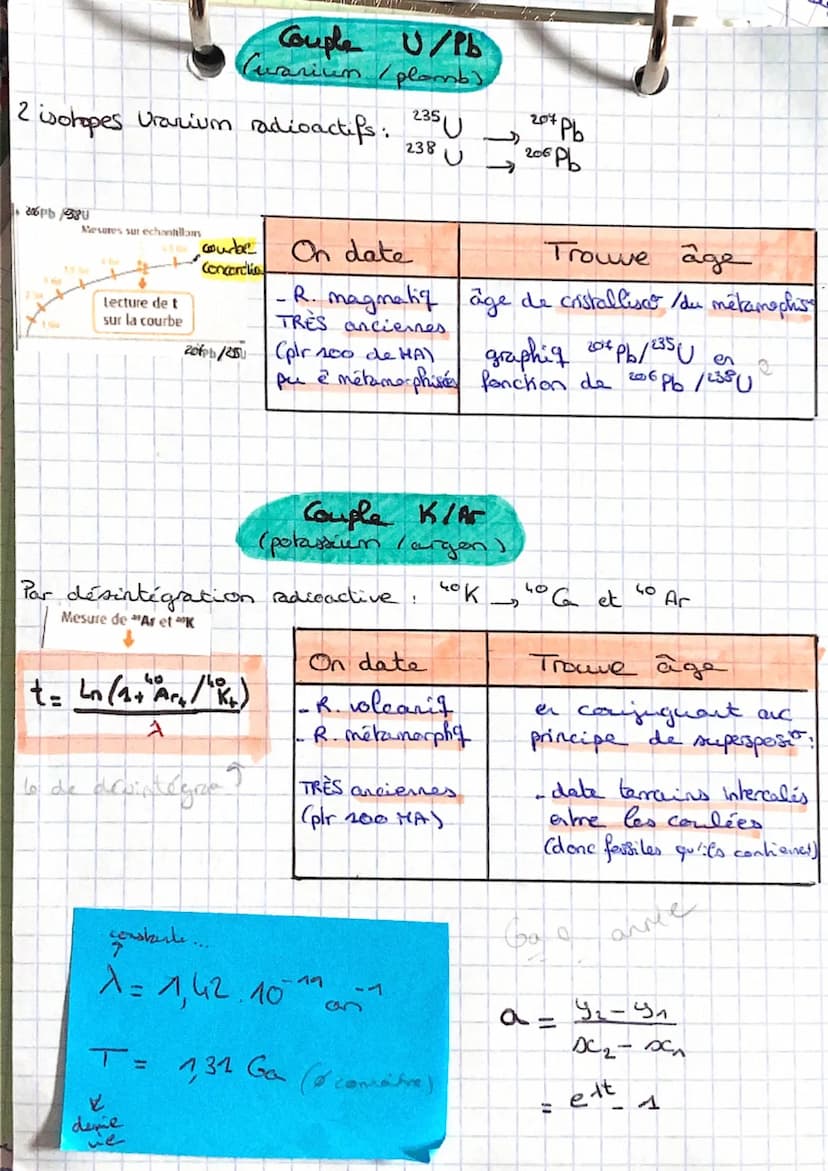 Couple U/Pb
(uranium / plomb)
2 isotopes Uranium radioactifs : ²³⁵U → ²⁰⁷Pb
²³⁸U → ²⁰⁶Pb
²⁰⁶Pb /²³⁸U
Mesures sur échantillons
courbe
Concordia
Lecture de t
sur la courbe
²⁰⁷Pb /²³⁵U
On date
- R. magmatiq
TRÈS anciennes
(plr 100 de MA)
pu ê métamorphisés
Trouve âge
âge de cristallisa° /du métamophis
graphiq ²⁰⁷Pb/²³⁵U en
fonction de ²⁰⁶Pb /²³⁸U
Couple K/Ar
(potassium / argon)
Par désintégration radioactive : ⁴⁰K → ⁴⁰Ca et ⁴⁰Ar
Mesure de ⁴⁰Ar et ⁴⁰K
t = Ln (1+ ⁴⁰Arₜ / ⁴⁰Kₜ)
λ
de désintégra°
On date
- R. volcaniq
- R. métamorphq
TRÈS anciennes
(plr 100 MA)
Trouve âge
en conjuguant avc
principe de superposi° :
- date terrains intercalés
entre les coulées
(donc fossiles qu'ils contiennent)
constante...
λ = 1,42 . 10⁻¹¹ an⁻¹
T = 1,31 Ga (Ø connaître)
demie
vie
Ga année
a = y₂ - y₁
x₂ - x₁
= e^λt - 1